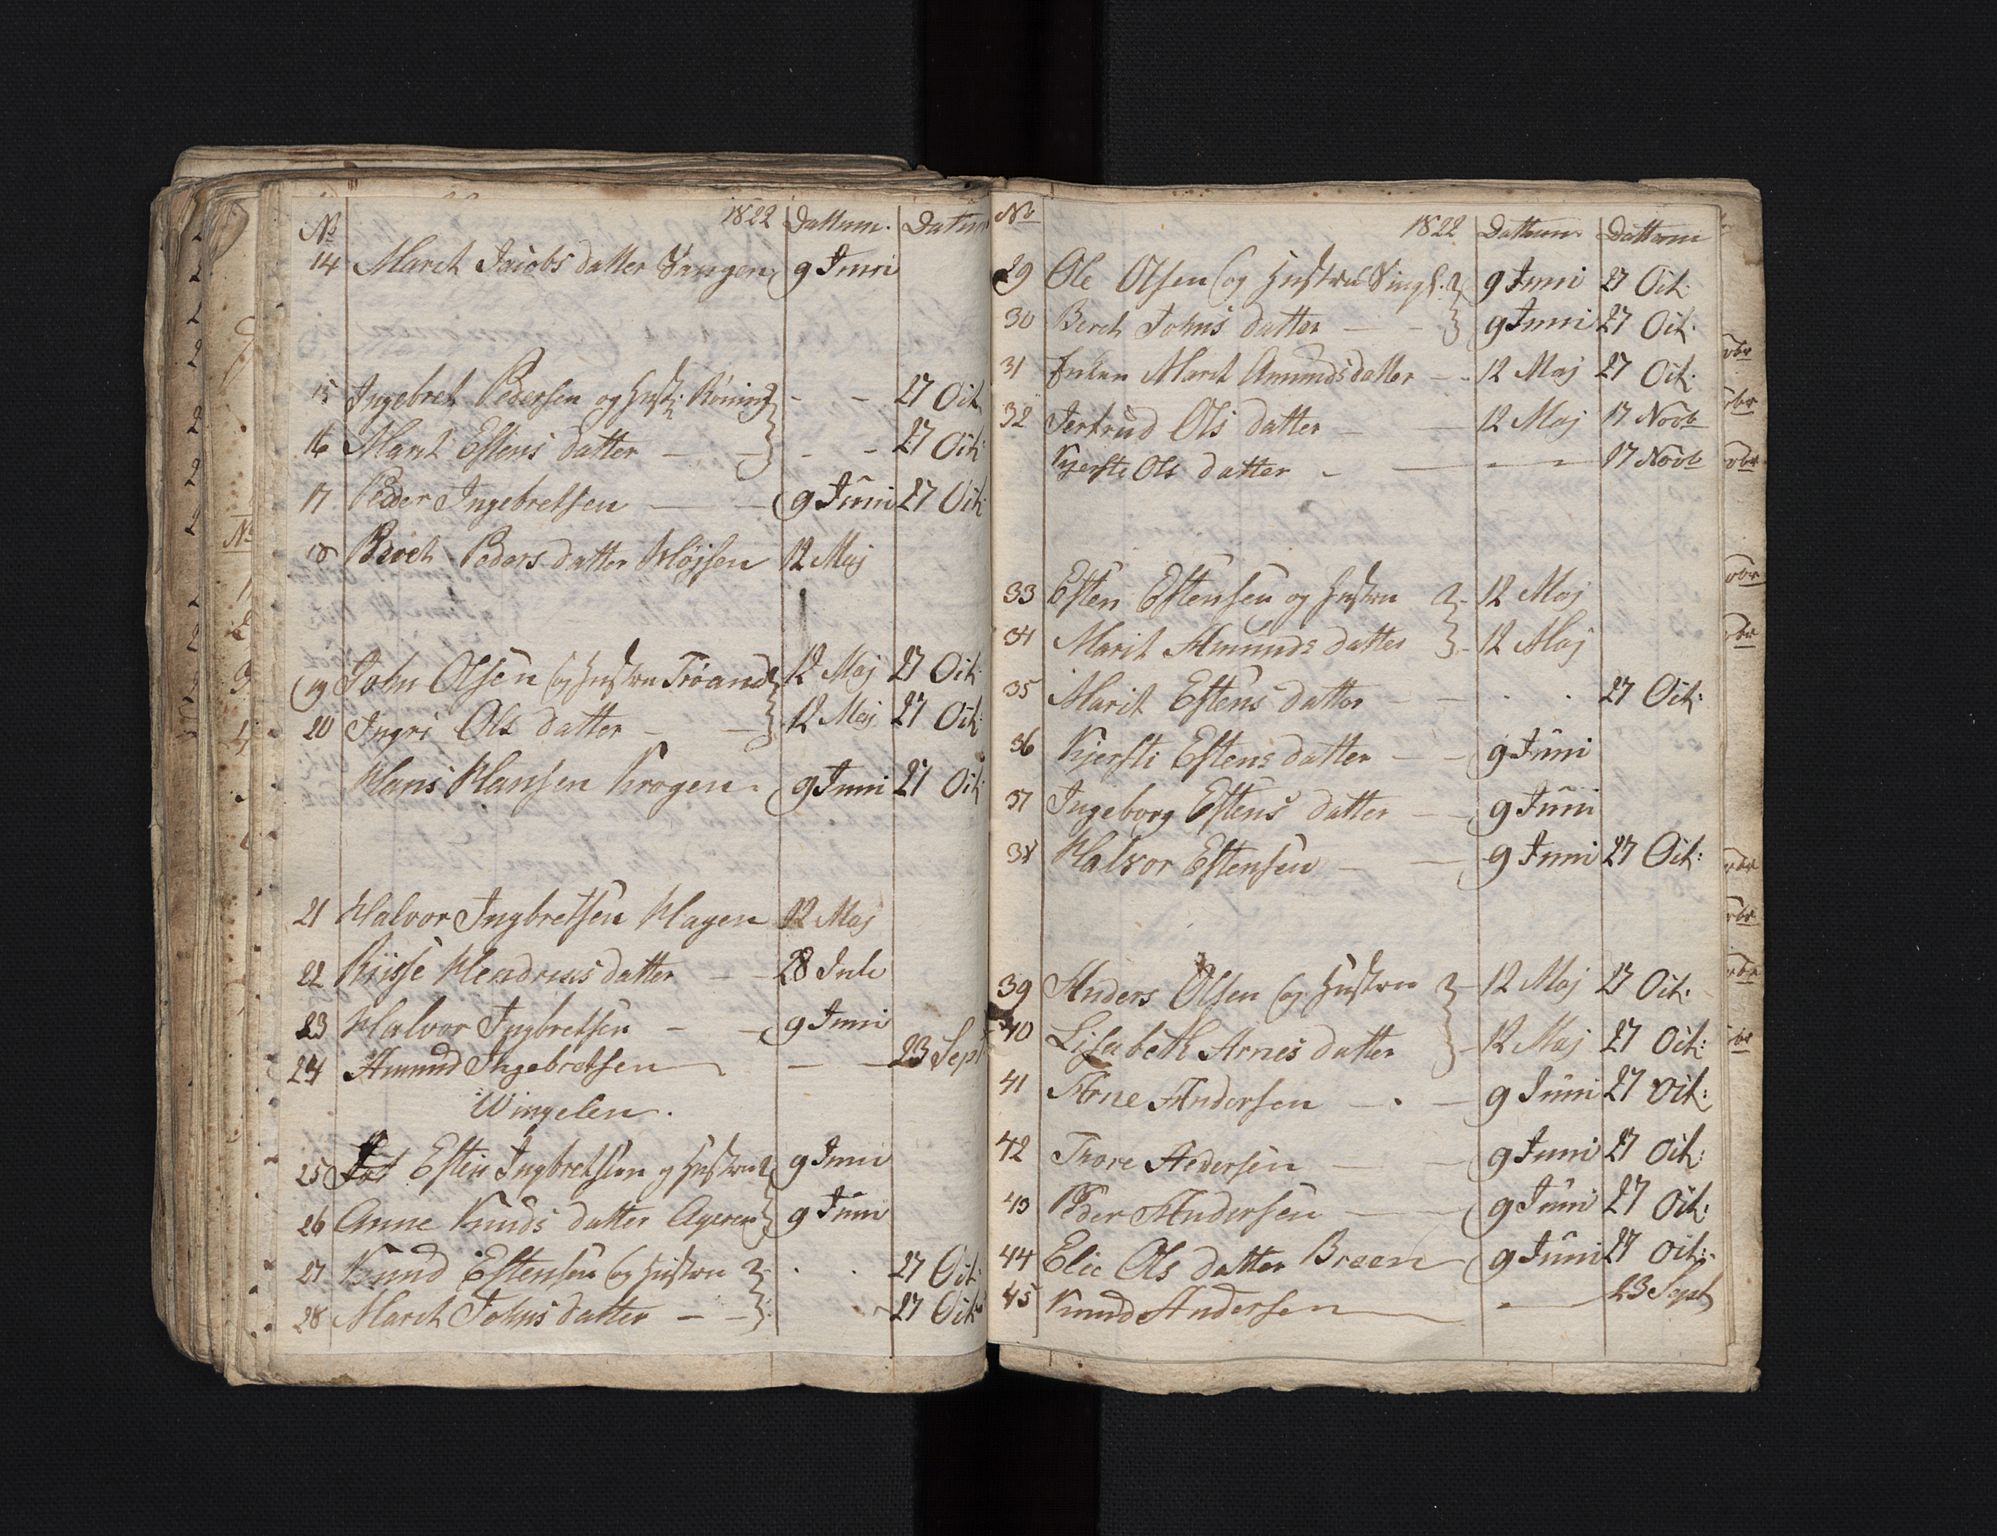 No 1822 Dattum. Datum
14 Maret Jacobs datter Vangen 9 Juni
15 Ingebret Pedersen og Hust: Röning - - 27 Oct
16 Marit Estens datter - - - - 27 Oct:
17 Peder Ingebretsen - - 9 Juni 27 Oct:
18 Beret Peders datter Høysen 12 Maj
19 John Olsen og Hustru Trøand 12 Maj 27 Oct:
20 Ingri Ols datter - - 12 Maj 27 Oct:
Hans Hansen Krogen - 9 Juni 27 Oct:
21 Halvor Ingbretsen Hagen 12 Maj
22 Riisse Hendricus datter - - 28 Jule
23 Halvor Ingbretsen - - 9 Juni
24 Amund Ingebretsen - - 23 Sept
Wingelen.
25 Esten Ingbretsen og Hustru 9 Juni
26 Anne Knuds datter Ageren 9 Juni
27 Knud Estensen og Hustru - . . 27 Oct:
28 Maret Johns datter - - 27 Oct:
No 1822 Dattum Dattum
29 Ole Olsen og Hustru Vingl. 9 Juni 27 Oct:
30 Beret Johns datter - - 9 Juni 27 Oct:
31 Marit Amunds datter - - 12 Maj 27 Oct:
32 Jertrud Ols datter - - 12 Maj 17 Novb
Kjersti Ols datter - - - - 17 Novb
33 Esten Estensen og Hustru - 12 Maj
34 Marit Amunds datter - 12 Maj
35 Marit Estens datter - - . . 27 Oct:
36 Kjersti Estens datter - - 9 Juni
37 Ingeborg Estens datter - - 9 Juni
38 Halvor Estensen - - 9 Juni 27 Oct:
39 Anders Olsen og Hustru - 12 Maj 27 Oct:
40 Lisabeth Arnes datter - 12 Maj 27 Oct:
41 Arne Andersen - . - 9 Juni 27 Oct:
42 Thore Andersen - - 9 Juni 27 Oct:
43 Peder Andersen - - 9 Juni 27 Oct:
44 Elie Ols datter Breen - 9 Juni 27 Oct:
45 Knud Andersen - - 23 Sept